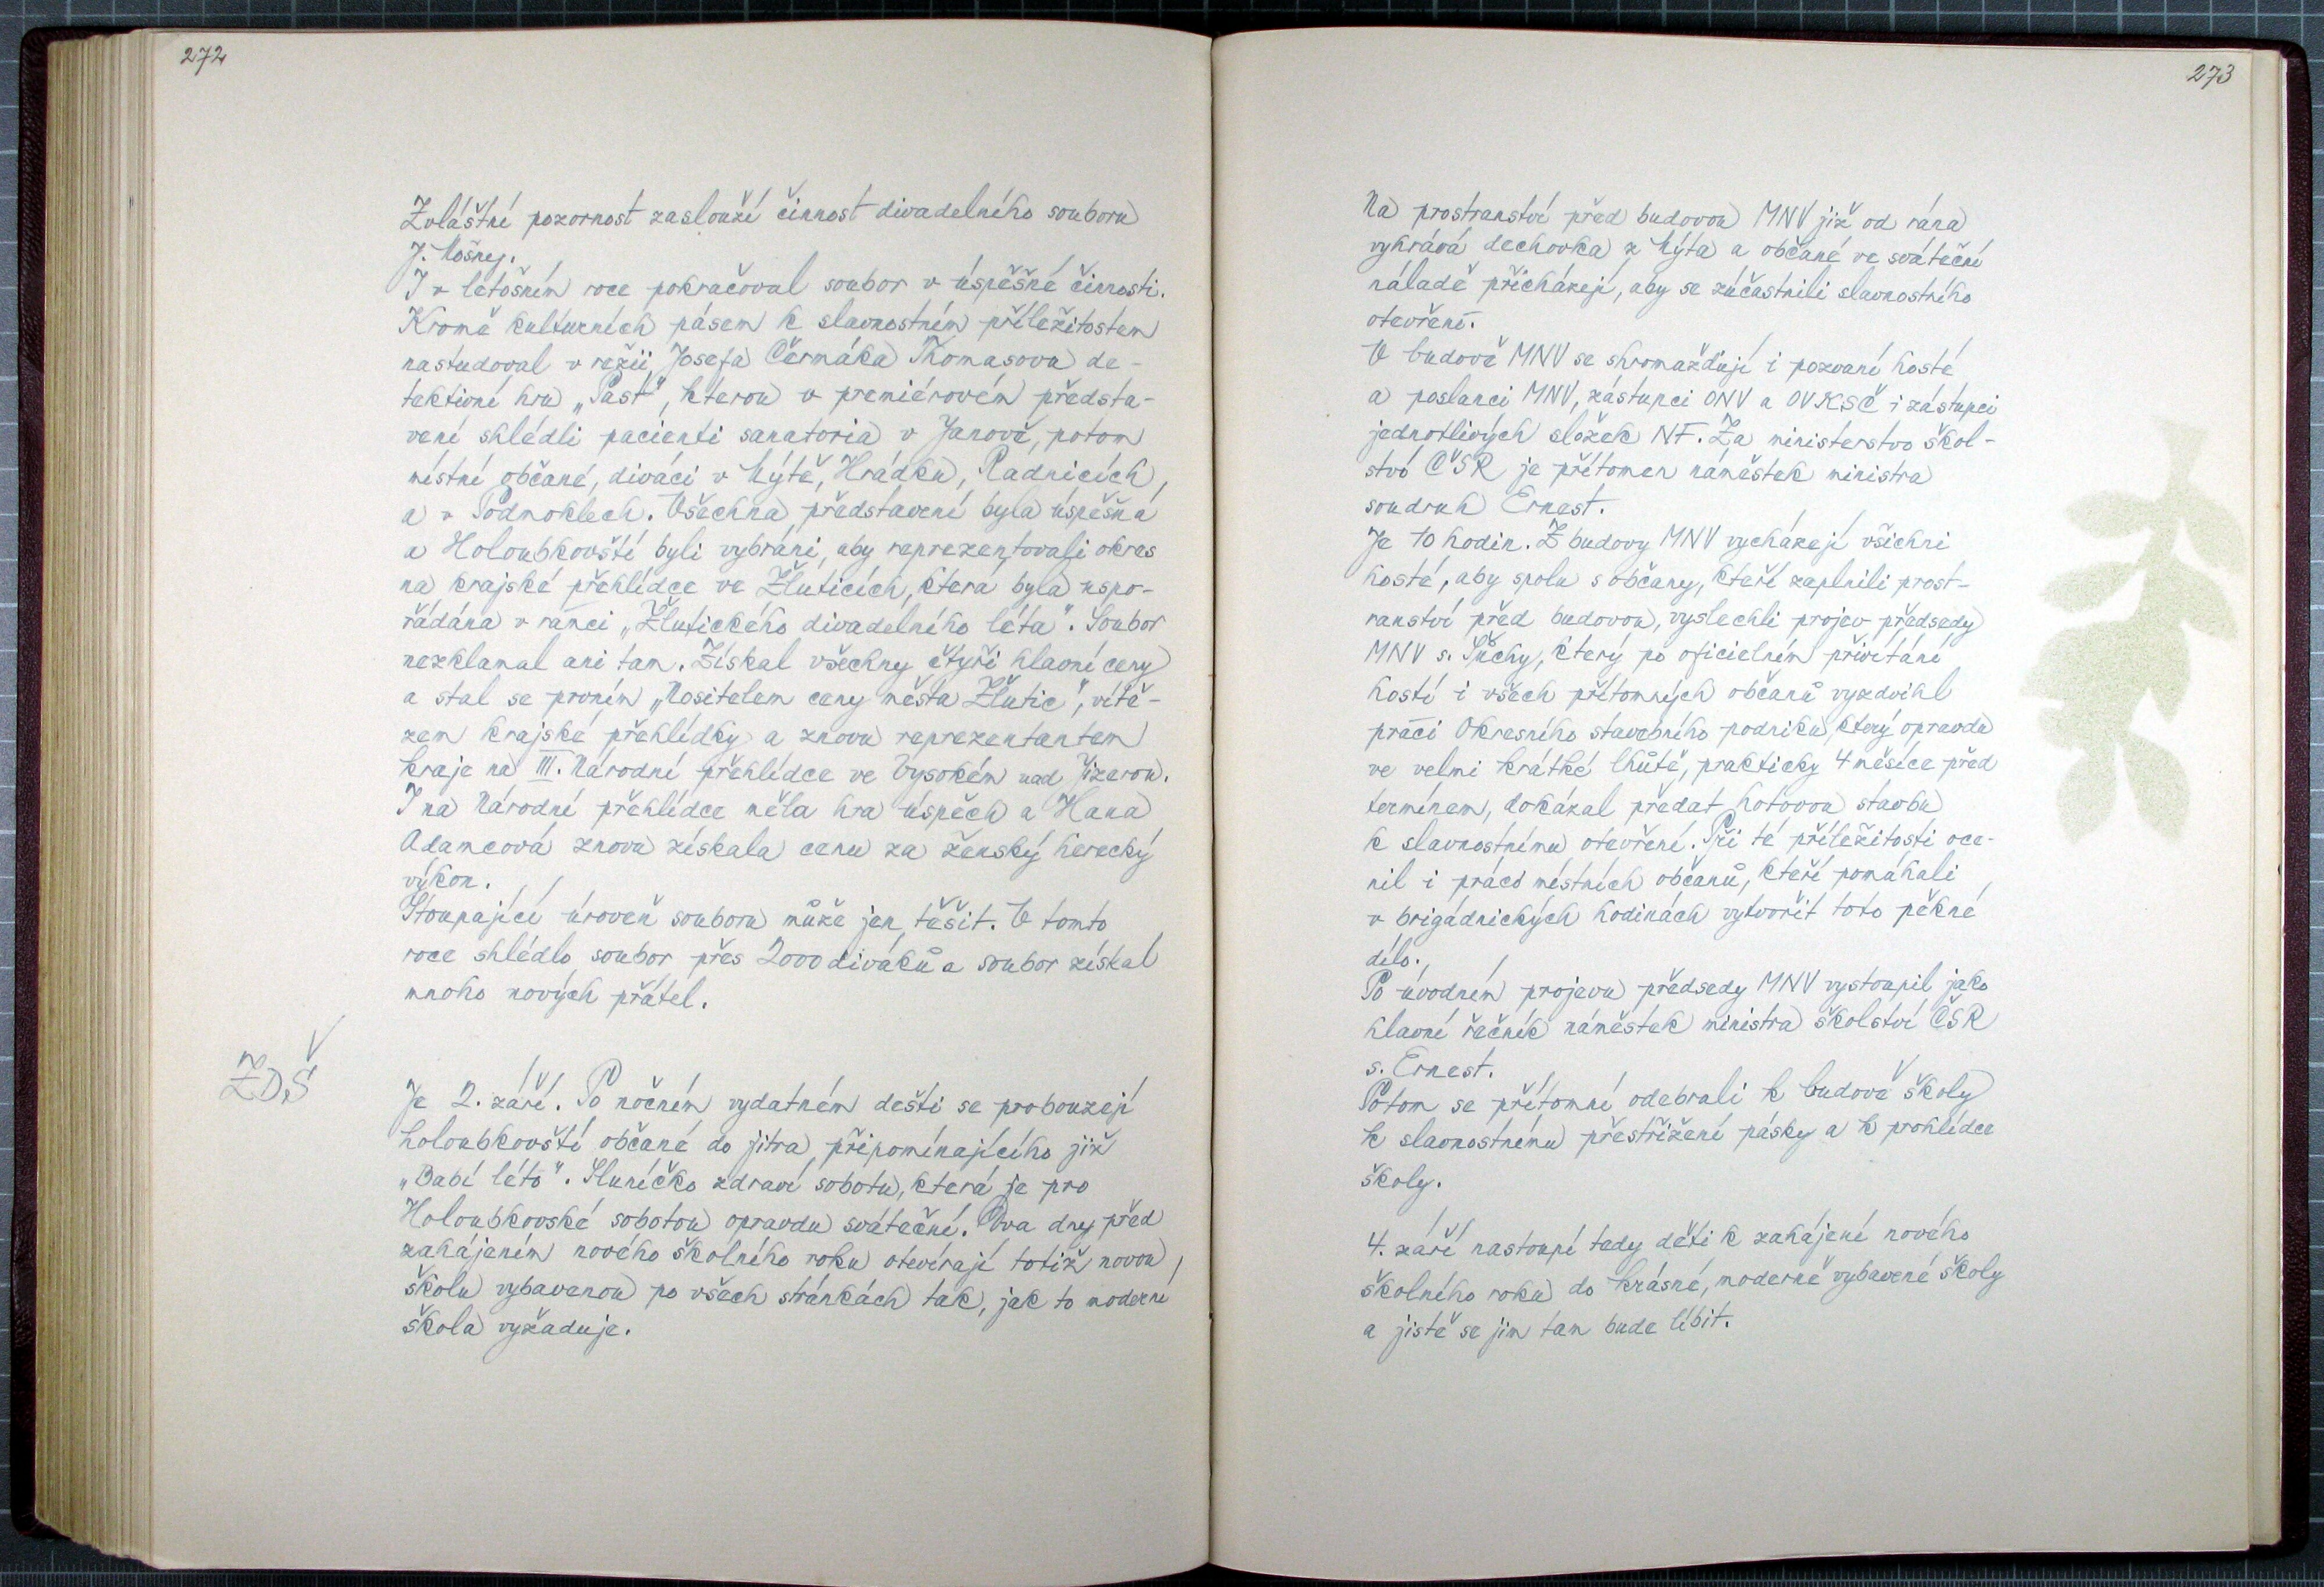 272
Zvláštní pozornost zaslouží činnost divadelního souboru
J. Mošny.
I v letošním roce pokračoval soubor v úspěšné činnosti.
Kromě kulturních pásem k slavnostním příležitostem
nastudoval v režii Josefa Čermáka Thomasovu de-
tektivní hru „Past", kterou v premiérovém předsta-
vení shlédli pacienti sanatoria v Janově, potom
místní občané, diváci v Mýtě, Hrádku, Radnicích,
a v Podmoklech. Všechna představení byla úspěšná
a Holoubkovští byli vybráni, aby reprezentovali okres
na krajské přehlídce ve Žluticích, která byla uspo-
řádána v rámci „Žlutického divadelního léta". Soubor
nezklamal ani tam. Získal všechny čtyři hlavní ceny
a stal se prvním „Nositelem ceny města Žlutic", vítě-
zem krajské přehlídky a znovu reprezentantem
kraje na III. Národní přehlídce ve Vysokém nad Jizerou.
I na Národní přehlídce měla hra úspěch a Hana
Adamcová znova získala cenu za ženský herecký
výkon.
Stoupající úroveň souboru může jen těšit. V tomto
roce shlédlo soubor přes 2000 diváků a soubor získal
mnoho nových přátel.
ZDŠ
Je 2. září. Po nočním vydatném dešti se probouzejí
holoubkovští občané do jitra, připomínajícího již
„Babí léto". Sluníčko zdraví sobotu, která je pro
Holoubkovské sobotou opravdu sváteční. Dva dny před
zahájením nového školního roku otevírají totiž novou
školu vybavenou po všech stránkách tak, jak to moderní
škola vyžaduje.
273
Na prostranství před budovou MNV již od rána
vyhrává dechovka z Mýta a občané ve sváteční
náladě přicházejí, aby se zúčastnili slavnostního
otevření.
V budově MNV se shromažďují i pozvaní hosté
a poslanci MNV, zástupci ONV a OV KSČ i zástupci
jednotlivých složek NF. Za ministerstvo škol-
ství ČSR je přítomen náměstek ministra
soudruh Ernest.
Je 10 hodin. Z budovy MNV vycházejí všichni
hosté, aby spolu s občany, kteří zaplnili prost-
ranství před budovou, vyslechli projev předsedy
MNV s. Suchy, který po oficielním přivítání
hostí i všech přítomných občanů vyzdvihl
práci Okresního stavebního podniku, který opravdu
ve velmi krátké lhůtě, prakticky 4 měsíce před
termínem, dokázal předat hotovou stavbu
k slavnostnímu otevření. Při té příležitosti oce-
nil i práci místních občanů, kteří pomáhali
v brigádnických hodinách vytvořit toto pěkné
dílo.
Po úvodním projevu předsedy MNV vystoupil jako
hlavní řečník náměstek ministra školství ČSR
s. Ernest.
Potom se přítomní odebrali k budově školy
k slavnostnímu přestřižení pásky a k prohlídce
školy.
4. září nastoupí tedy děti k zahájení nového
školního roku do krásné, moderně vybavené školy
a jistě se jim tam bude líbit.